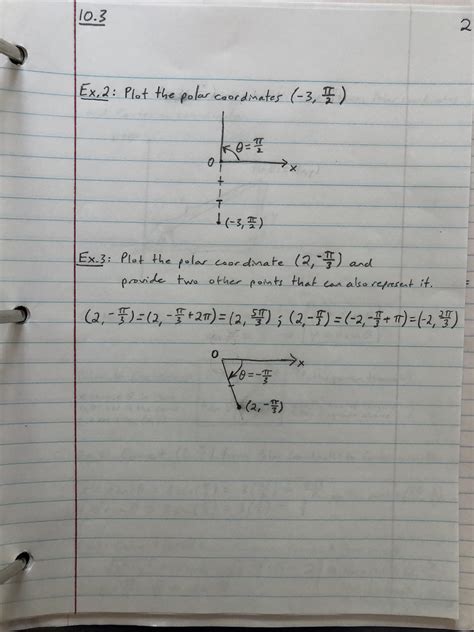 10.3
2
Ex.2: Plot the polar coordinates (-3, π/2)
θ = π/2
O
x
(-3, π/2)
Ex.3: Plot the polar coordinate (2, -π/3) and
provide two other points that can also represent it.
(2, -π/3) = (2, -π/3 + 2π) = (2, 5π/3) ; (2, -π/3) = (-2, -π/3 + π) = (-2, 2π/3)
O
x
θ = -π/3
(2, -π/3)